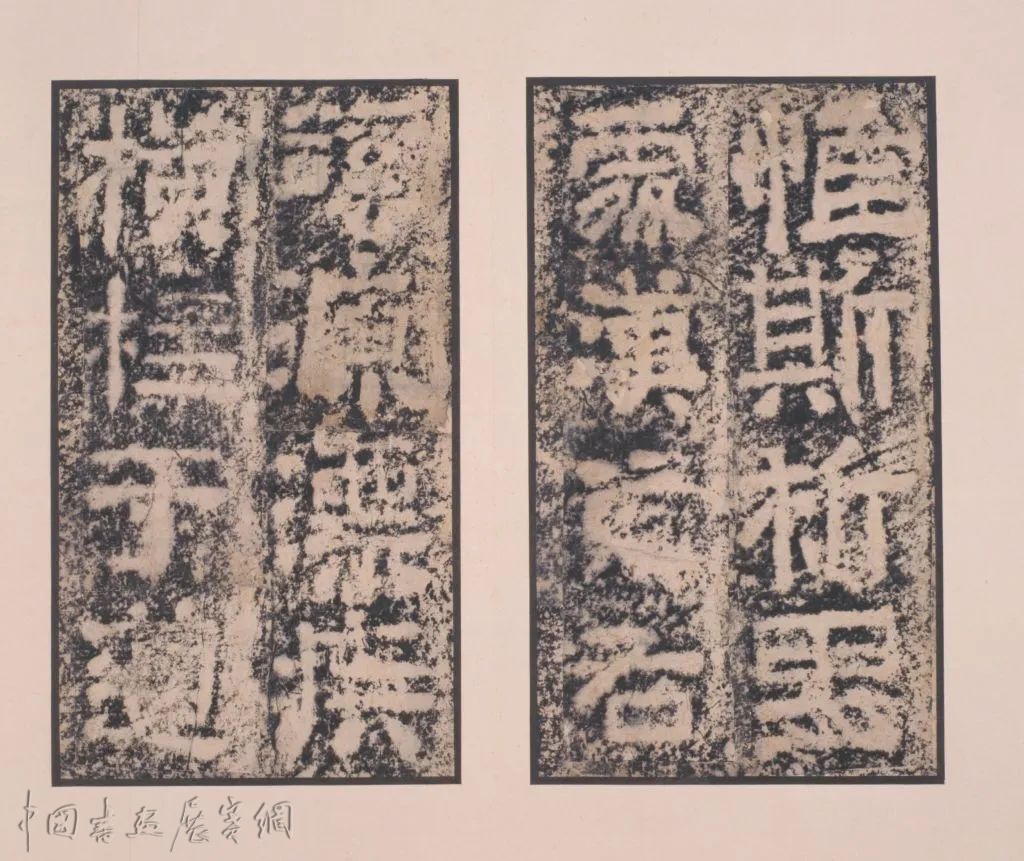 惟斯析里
處漢之右
谿源漂疾
橫柱于道
中国書画展賽網